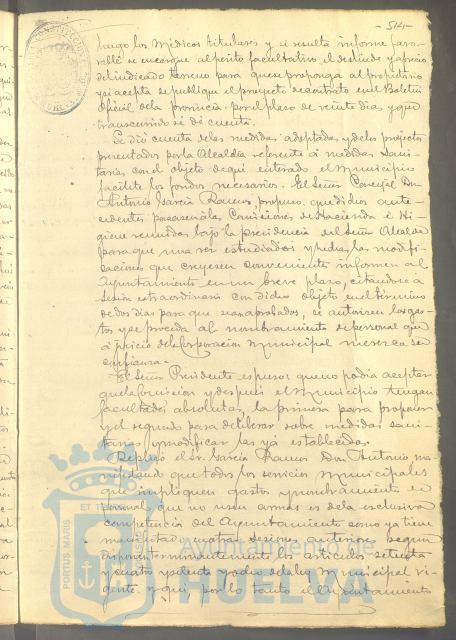 - 514 -
luego los Médicos titulares y si resulta informe favo-
rable se encargue al perito facultativo el deslinde y aprecio
del indicado terreno para que se proponga al propietario
y si acepta se publique el proyecto de contrato en el Boletin
Oficial de la provincia por el plazo de veinte dias y que
transcurrido se dé cuenta.
Se dió cuenta de las medidas adoptadas y de los proyectos
presentados por la Alcaldía referente á medidas sani-
tarias con el objeto de que enterado el Municipio
facilite los fondos necesarios. El Señor Concejal Don
Antonio García Ramos propuso que dichos ante-
cedentes pasasen á las Comisiones de Hacienda é Hi-
giene reunidas bajo la presidencia del Señor Alcalde
para que una vez estudiados y hechas las modifi-
caciones que creyesen convenientes informen al
Ayuntamiento en un breve plazo, citandose á
sesion extraordinaria con dicho objeto en el termino
de dos dias para que sean aprobados, se autoricen los gas-
tos y se proceda al nombramiento de personal que
á juicio de la Corporacion Municipal merezca su
confianza.
El Señor Presidente expuso que no podia aceptar
que la Comision y despues el Municipio tengan
facultades absolutas, la primera para proponer
y el segundo para deliberar sobre medidas sani-
tarias y modificar las yá establecidas.
Replicó el Sr. García Ramos Don Antonio ma-
nifestando que todos los servicios Municipales
que impliquen gastos y nombramiento de
personal que no usen armas es de la exclusiva
competencia del Ayuntamiento como ya tiene
manifestado en otras sesiones anteriores segun
disponen terminantemente los articulos setenta
y cuatro y setenta y ocho de la ley Municipal vi-
gente y que por lo tanto el Ayuntamiento
PORTUS MARIS
ET TE
Ayuntamiento de
HUELVA